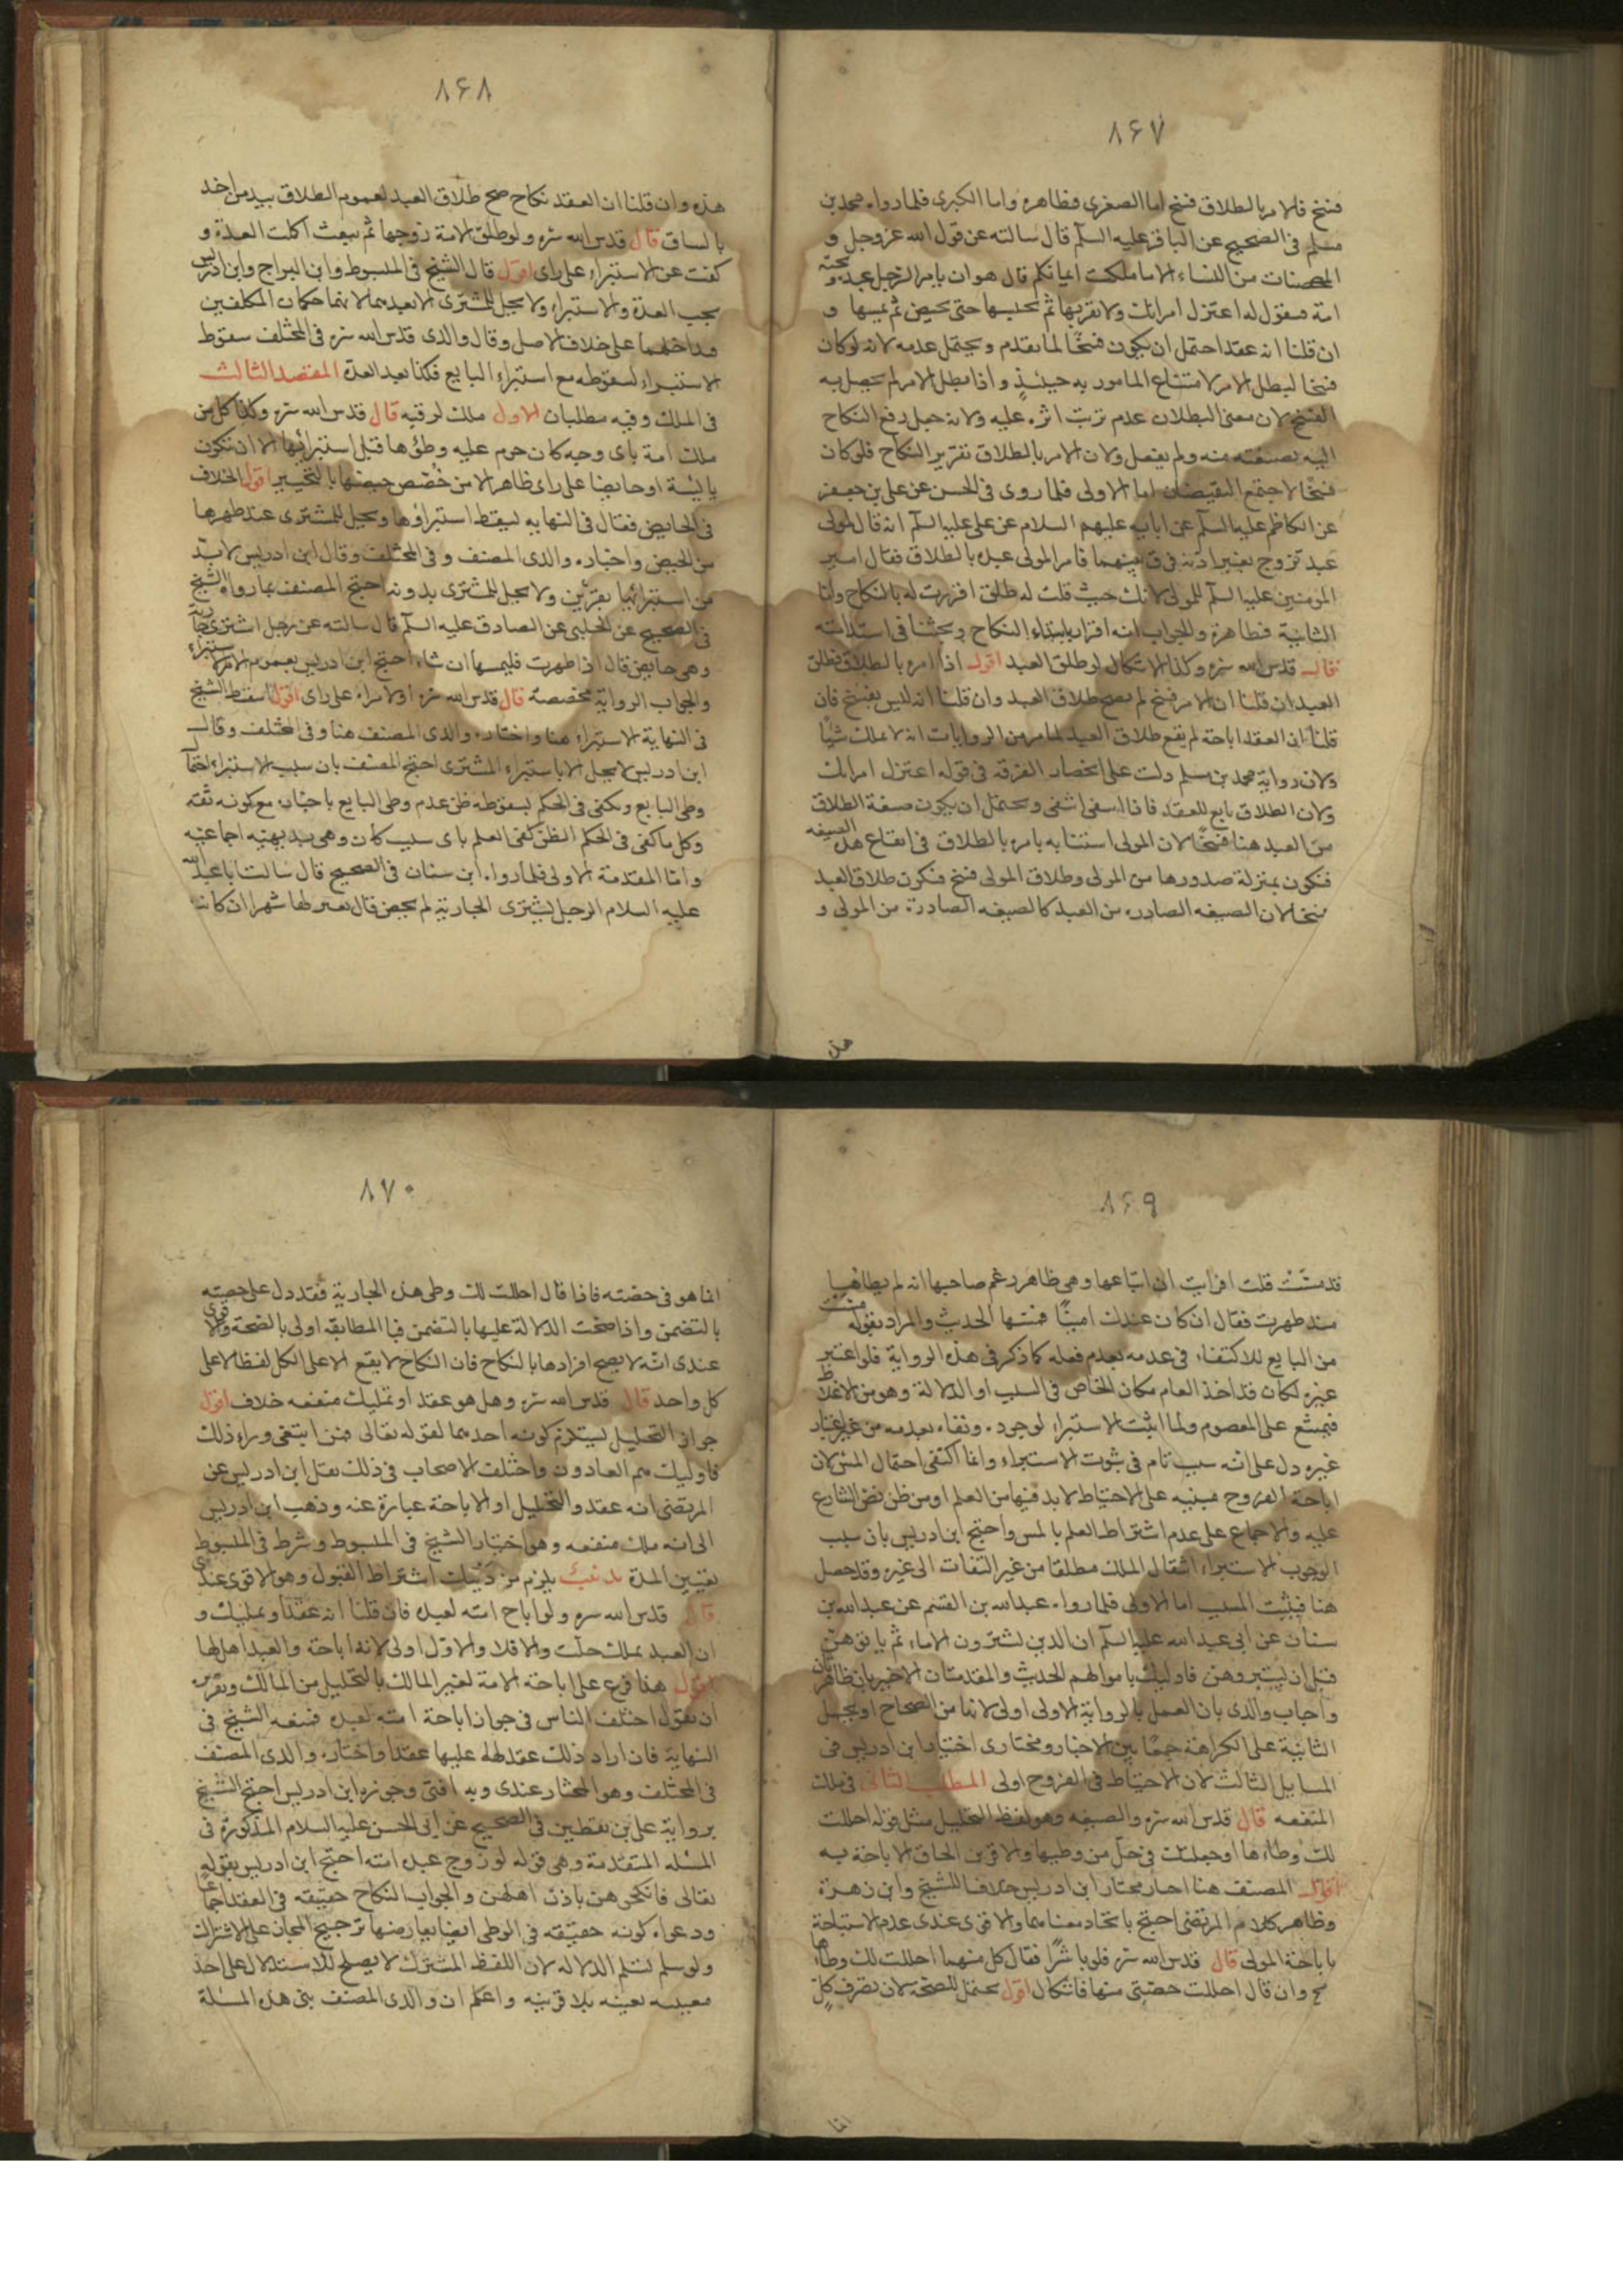 ٨۶٧
فسخ فلامر بالطلاق فسخ اما الصغرى فظاهره واما الكبرى فلما رواه محمد بن
مسلم فى الصحيح عن الباقر عليه السلم قال سالته عن قول الله عز وجل و
المحصنات من النساء الا ما ملكت ايمانكم قال هو ان يامر الرجل عبده وتحته
امة فيقول له اعتزل امراتك ولا تقربها ثم يحبسها حتى تحيض ثم يمسها و
ان قلنا انه عقد احتمل ان يكون فسخا لما تقدم ويحتمل عدمه لانه لو كان
فسخا لبطل الامر لامتناع المامور به حينئذ واذا بطل الامر لم يحصل به
الفسخ لان معنى البطلان عدم ترتب اثره عليه ولانه جعل رفع النكاح
اليه بصيغته منه ولم يفعل ولان الامر بالطلاق تقرير النكاح فلو كان
فسخا لاجتمع النقيضان اما الاولى فلما روى فى الحسن عن على بن جعفر
عن الكاظم عليه السلم عن ابايه عليهم السلام عن على عليه السلم انه قال لمولى
عبد تزوج بغير اذنه فرق بينهما فامر المولى عبده بالطلاق فقال امير
المؤمنين عليه السلم للمولى لانك حيث قلت له طلق اقررت له بالنكاح واما
الثانية فظاهرة والجواب انه اقرار بابتداء النكاح وبحثنا فى استدامته
قال قدس الله سره وكذا الاشكال لو طلق العبد اقول اذا امره بالطلاق فطلق
العبد ان قلنا ان الامر فسخ لم يصح طلاق العبد وان قلنا انه ليس بفسخ فان
قلنا ان العقد اباحة لم يقع طلاق العبد لما مر من الروايات انه لا يملك شيًا
ولان رواية محمد بن مسلم دلت على انحصار الفرقة فى قوله اعتزل امراتك
ولان الطلاق تابع للعقد فاذا انتفى انتفى ويحتمل ان يكون صيغة الطلاق
من العبد هنا فسخا لان المولى استنابه بامره بالطلاق فى ايقاع هذه الصيغه
فتكون بمنزلة صدورها من المولى وطلاق المولى فسخ فتكون طلاق العبد
فسخا لان الصيغه الصادره من العبد كالصيغه الصادرة من المولى و
هذه
٨۶٨
هذه وان قلنا ان العقد نكاح صح طلاق العبد لعموم الطلاق بيد من اخذ
بالساق قال قدس الله سره ولو طلق الامة زوجها ثم بيعت اكملت العدة و
كفت عن الاستبراء على راى اقول قال الشيخ فى المبسوط وابن البراج وابن ادريس
يجب العدة والاستبراء ولا يحل للمشترى الا بعدهما لانهما حكمان المكلفين
فتداخلهما على خلاف الاصل وقال والدى قدس الله سره فى المختلف سقوط
الاستبراء لسقوطه مع استبراء البايع فكذا بعد العدة المقصد الثالث
فى الملك وفيه مطلبان الاول ملك الرقبه قال قدس الله سره وكذا كل من
ملك امة باى وجه كان حرم عليه وطؤها قبل استبرائها الا ان تكون
يائسة او حايضا على راى ظاهر الا من خُصّص حيضها بالتخيير اقول الخلاف
فى الحايض فقال فى النهايه ليسقط استبراؤها ويحل للمشترى عند طهرها
من الحيض واختاره والدى المصنف و فى المختلف وقال ابن ادريس لا بد
من استبرائها بقرئين ولا يحل للمشترى بدونه احتج المصنف بما رواه الشيخ
فى الصحيح عن الحلبى عن الصادق عليه السلم قال سالته عن رجل اشترى جارية
وهى حايض قال اذا طهرت فليمسها ان شاء احتج ابن ادريس بعموم الامر بالاستبراء
والجواب الرواية مخصصة قال قدس الله سره او لامراة على راى اقول اسقط الشيخ
فى النهاية الاستبراء هنا واختاره والدى المصنف هنا وفى المختلف وقال
ابن ادريس لا يحل الا باستبراء المشترى احتج المصنف بان سبب الاستبراء احتمال
وطى البايع ويكفى فى الحكم بسقوطه ظن عدم وطى البايع باخباره مع كونه ثقة
وكل ما كفى فى الحكم الظن كفى العلم باى سبب كان وهى بديهيه اجماعيه
واما المقدمة الاولى فلما رواه ابن سنان فى الصحيح قال سالت ابا عبد الله
عليه السلام الرجل يشترى الجارية لم تحيض قال يعتزلها شهرا ان كانت
٨۶٩
قد مسّت قلت افرايت ان ابتاعها وهى ظاهر زعم صاحبها انه لم يطاها
منذ طهرت فقال ان كان عندك امينًا فمسّها الحديث والمراد بقوله مسّت
من البايع للاكتفاء فى عدمه بعدم فعله كما ذكر فى هذه الرواية فلو اعتبر
غيره لكان قد اخذ العام مكان الخاص فى السبب او الدلالة وهو من الاغلاط
فيمتنع على المعصوم ولما اثبت الاستبراء لوجوده ونفاه بعدمه من غير اعتبار
غيره دل على انه سبب تام فى ثبوت الاستبراء وانما اكتفى احتمال المس لان
اباحة الفروج مبنيه على الاحتياط لا بد فيها من العلم او من ظن نص الشارع
عليه والاجماع على عدم اشتراط العلم بالمس واحتج ابن ادريس بان سبب
الوجوب الاستبراء انتقال الملك مطلقا من غير التفات الى غيره وقد حصل
هنا فيثبت المسبب اما الاولى فلما رواه عبد الله بن القسم عن عبد الله بن
سنان عن ابى عبد الله عليه السلم ان الذين يشترون الاماء ثم ياتوهن
قبل ان يستبروهن فاوليك باموالهم الحديث والمقدمتان الاخيرتان ظاهرتان
واجاب والدى بان العمل بالرواية الاولى اولى لانها من الصحاح او يحمل
الثانية على الكراهة جمعًا بين الاخبار ومختارى اختيار ابن ادريس فى
المسايل الثالث لان الاحتياط فى الفروج اولى المطلب الثانى فى ملك
المنفعه قال قدس الله سره والصيغه وهو لفظ التحليل مثل قوله احللت
لك وطأها او جعلتك فى حلّ من وطيها والاقرب الحاق الاباحة به
اقول المصنف هنا اختار مختار ابن ادريس خلافا للشيخ وابن زهرة
وظاهر كلام المرتضى احتج باتحاد معناهما والاقوى عندى عدم الاستباحة
باباحة المولى قال قدس الله سره فلو باشرا فقال كل منهما احللت لك وطأها
صح وان قال احللت حصتى منها فاشكال اقول يحتمل للصحة لان تصرف كلٍ
انما
٨٧٠
انما هو فى حصته فاذا قال احللت لك وطى هذه الجارية فقد دل على حصته
بالتضمن واذا صحت الدلالة عليها بالتضمن فبالمطابقه اولى بالصحة والاقوى
عندى انه لا يصح افرادها بالنكاح فان النكاح لا يقع الا على الكل لفظا لا على
كل واحد قال قدس الله سره وهل هو عقد او تمليك منفعه خلاف اقول
جواز التحليل يستلزم كونه احدهما لقوله تعالى فمن ابتغى وراء ذلك
فاوليك هم العادون واختلف الاصحاب فى ذلك نقل ابن ادريس عن
المرتضى انه عقد والتحليل او الاباحة عبارة عنه وذهب ابن ادريس
الى انه ملك منفعه وهو اختيار الشيخ فى المبسوط وشرط فى المبسوط
تعيين المدة تذنيب يلزم من ذينك اشتراط القبول وهو الاقوى عندى
قال قدس الله سره ولو اباح امته لعبده فان قلنا انه عقد او تمليك و
ان العبد يملك حلّت والا فلا والاول اولى لانه اباحة والعبد اهل لها
اقول هذا فرع على اباحة الامة لغير المالك بالتحليل من المالك وتقريره
ان نقول اختلف الناس فى جواز اباحة امته لعبده فمنعه الشيخ فى
النهاية فان اراد ذلك عقد له عليها عقدا واختاره والدى المصنف
فى المختلف وهو المختار عندى وبه افتى وجوزه ابن ادريس احتج الشيخ
برواية على بن يقطين فى الصحيح عن ابى الحسن عليه السلام المذكورة فى
المسئله المتقدمة وهى قوله لو زوج عبده امته احتج ابن ادريس بقوله
تعالى فانكحوهن باذن اهلهن والجواب النكاح حقيقه فى العقد اجماعا
ودعواه كونه حقيقه فى الوطى ايضا يعارضها ترجيح المجاز على الاشتراك
ولو سلم لتسلم الدلاله لان اللفظ المشترك لا يصلح للاستدلال على احد
معينيه بعينه بلا قرينه واعلم ان والدى المصنف بنى هذه المسئلة